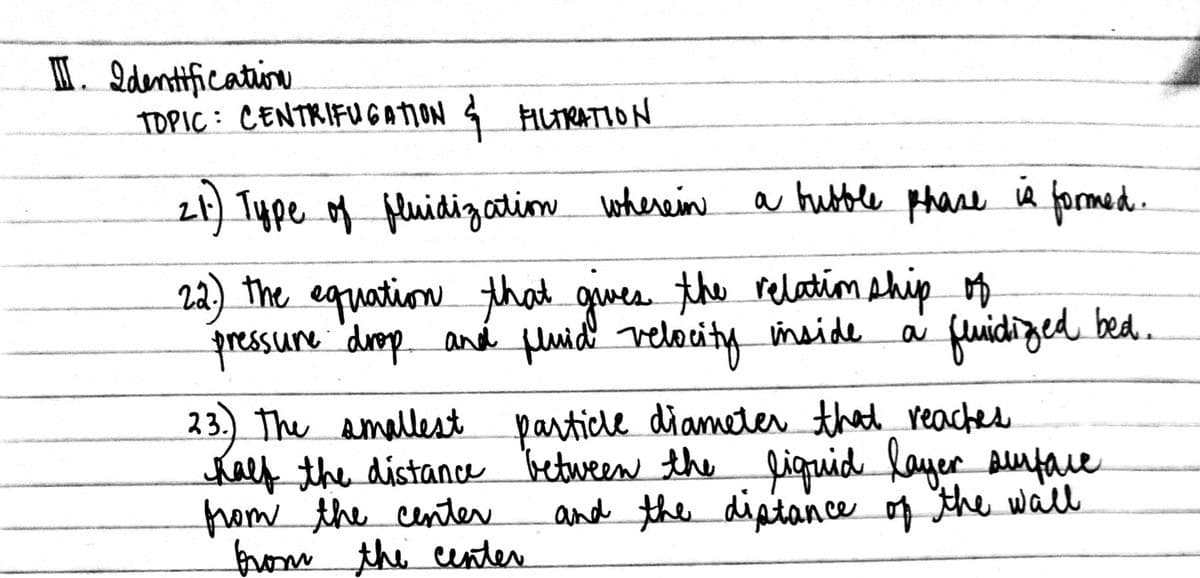 III. Identification
TOPIC: CENTRIFUGATION & FILTRATION
21.) Type of fluidization wherein a bubble phase is formed.
22.) The equation that gives the relationship of
pressure drop and fluid velocity inside a fluidized bed.
23.) The smallest particle diameter that reaches
half the distance between the liquid layer surface
from the center and the distance of the wall
from the center